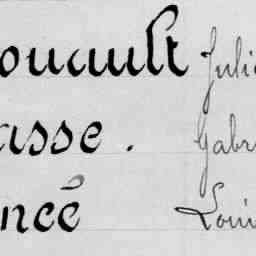 ouault Juli
asse. Gabr
ncé Loui